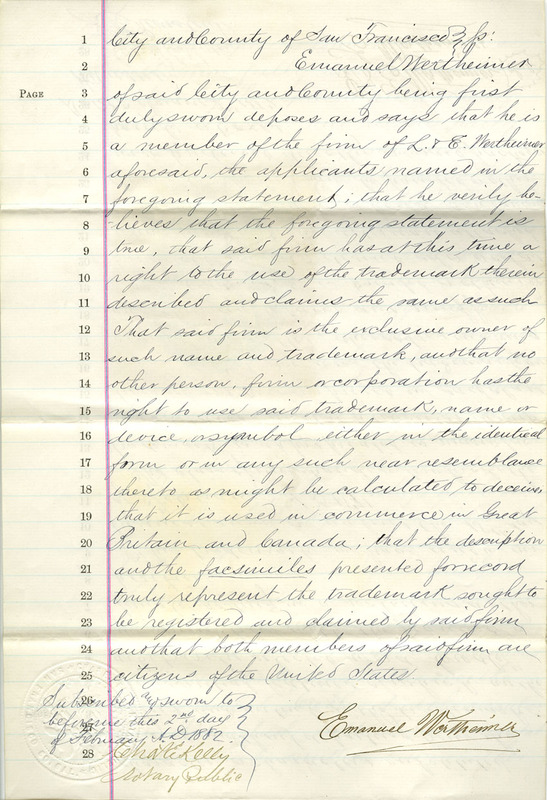 1 City and County of San Francisco } ss:
2 Emanuel Wertheimer
PAGE 3 of said City and County being first
4 duly sworn deposes and says that he is
5 a member of the firm of L. & E. Wertheimer
6 aforesaid, the applicants named in the
7 foregoing statement; that he verily be-
8 -lieves that the foregoing statement is
9 true, that said firm has at this time a
10 right to the use of the trademark therein
11 described and claims the same as such
12 That said firm is the exclusive owner of
13 such name and trademark, and that no
14 other person, firm or corporation has the
15 right to use said trademark, name or
16 device, or symbol either in the identical
17 form or in any such near resemblance
18 thereto as might be calculated to deceive,
19 that it is used in commerce in Great
20 Britain and Canada; that the description
21 and the facsimiles presented for record
22 truly represent the trademark sought to
23 be registered and claimed by said firm
24 and that both members of said firm are
25 citizens of the United States
26 Subscribed and sworn to
27 before me this 2nd day
of February A.D. 1882.
Emanuel Wertheimer
28 Chas E Kelly
Notary Public